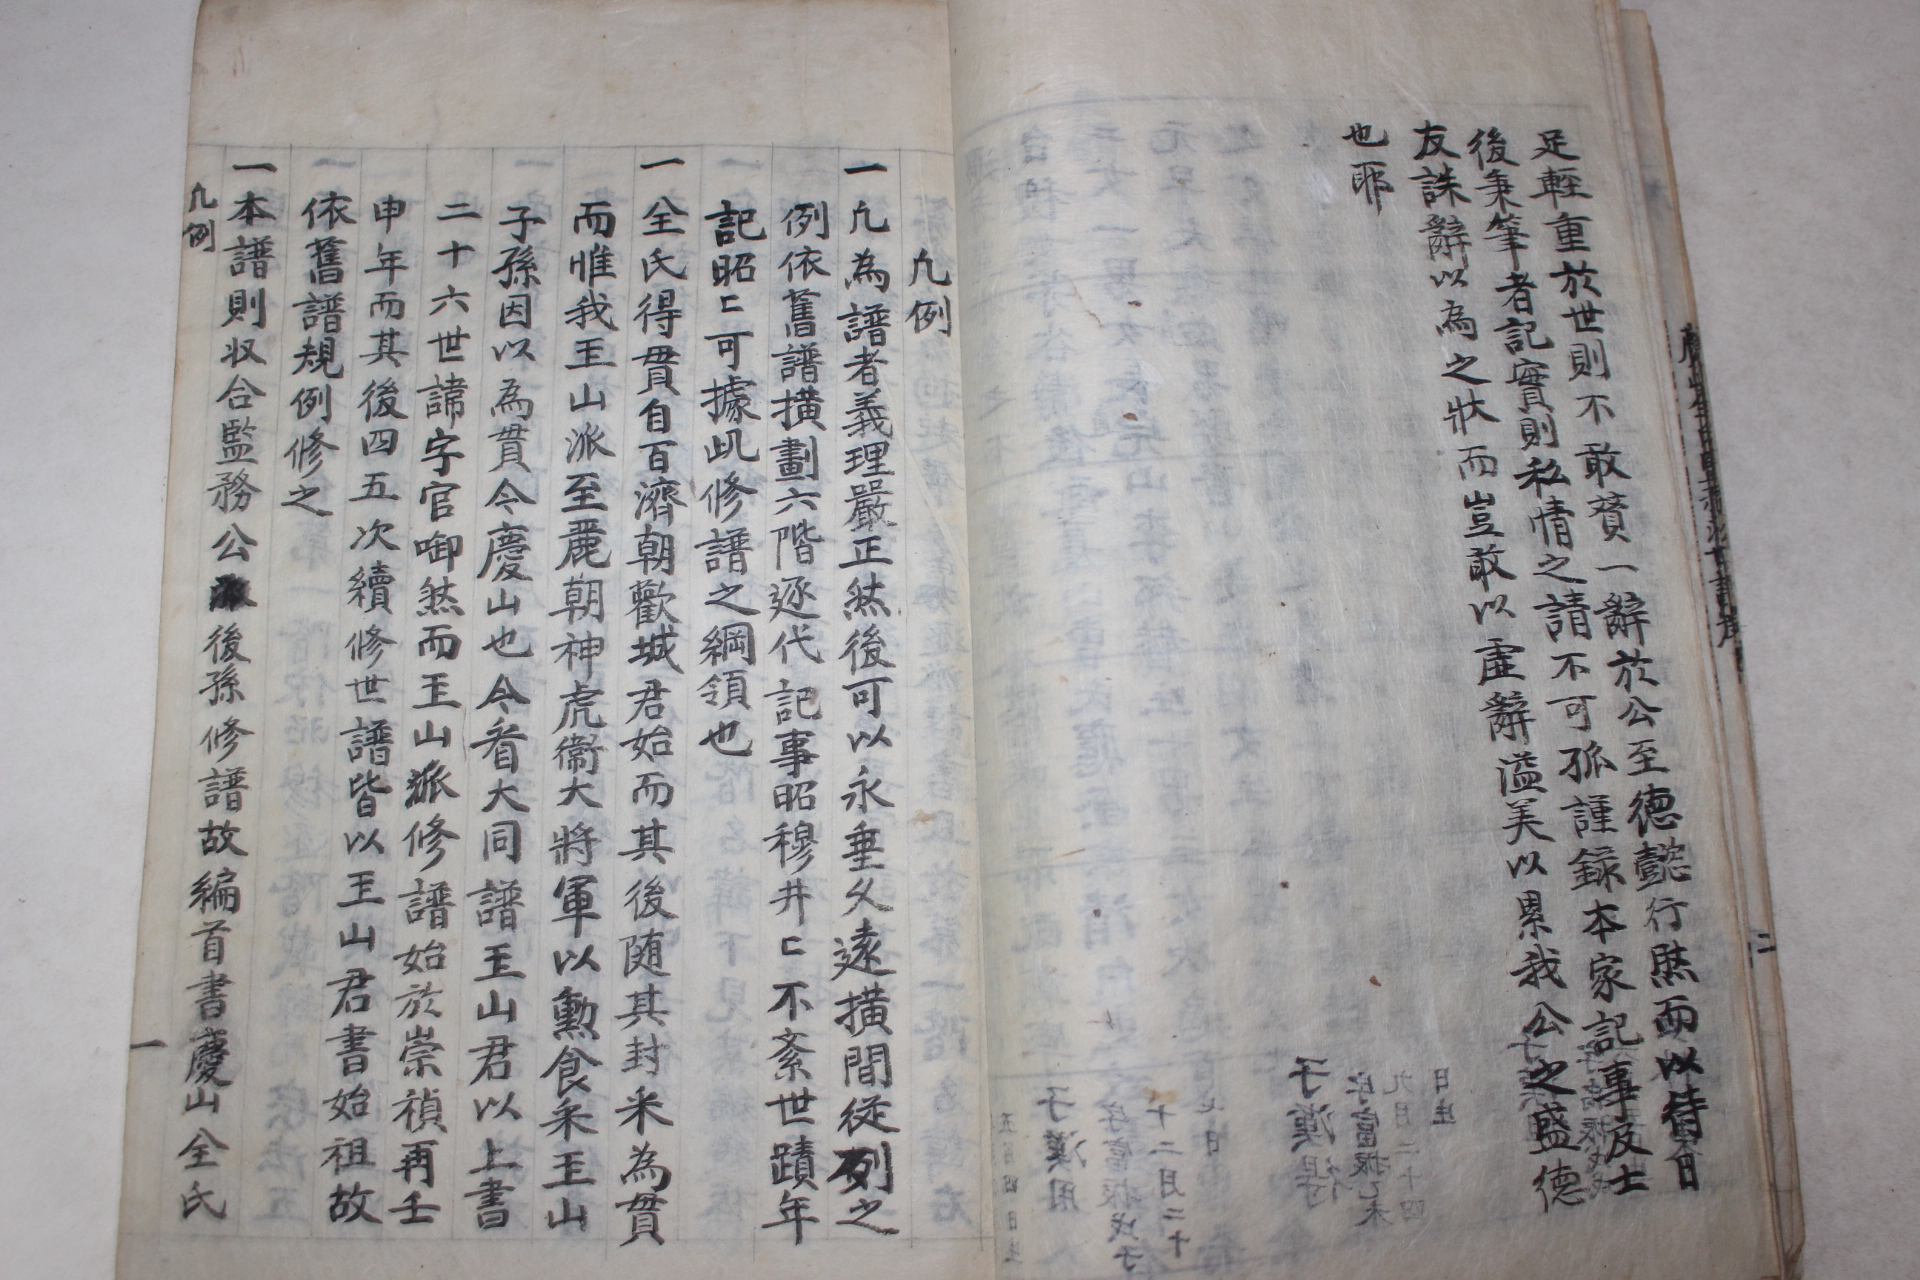 足輕重於世則不敢贅一辭於公至德懿行照而以待日
後秉筆者記實則私情之請不可孤謹錄本家記事及士
友誄辭以為之狀而豈敢以虛辭溢美以累我公之盛德
也耶
凢例
一凢為譜者義理嚴正然後可以永垂久遠橫間從列之
例依舊譜橫劃六階逐代記事昭穆井〻不紊世蹟年
記昭〻可據此修譜之綱領也
一全氏得貫自百濟朝歡城君始而其後随其封釆為貫
而惟我王山派至麗朝神虎衛大將軍以勳食釆王山
子孫因以為貫今慶山也今看大同譜王山君以上書
二十六世諱字官啣然而王山派修譜始於崇禎再壬
申年而其後四五次續修世譜皆以王山君書始祖故
依舊譜規例修之
一本譜則収合監務公後孫修譜故編首書慶山全氏
凢例
一